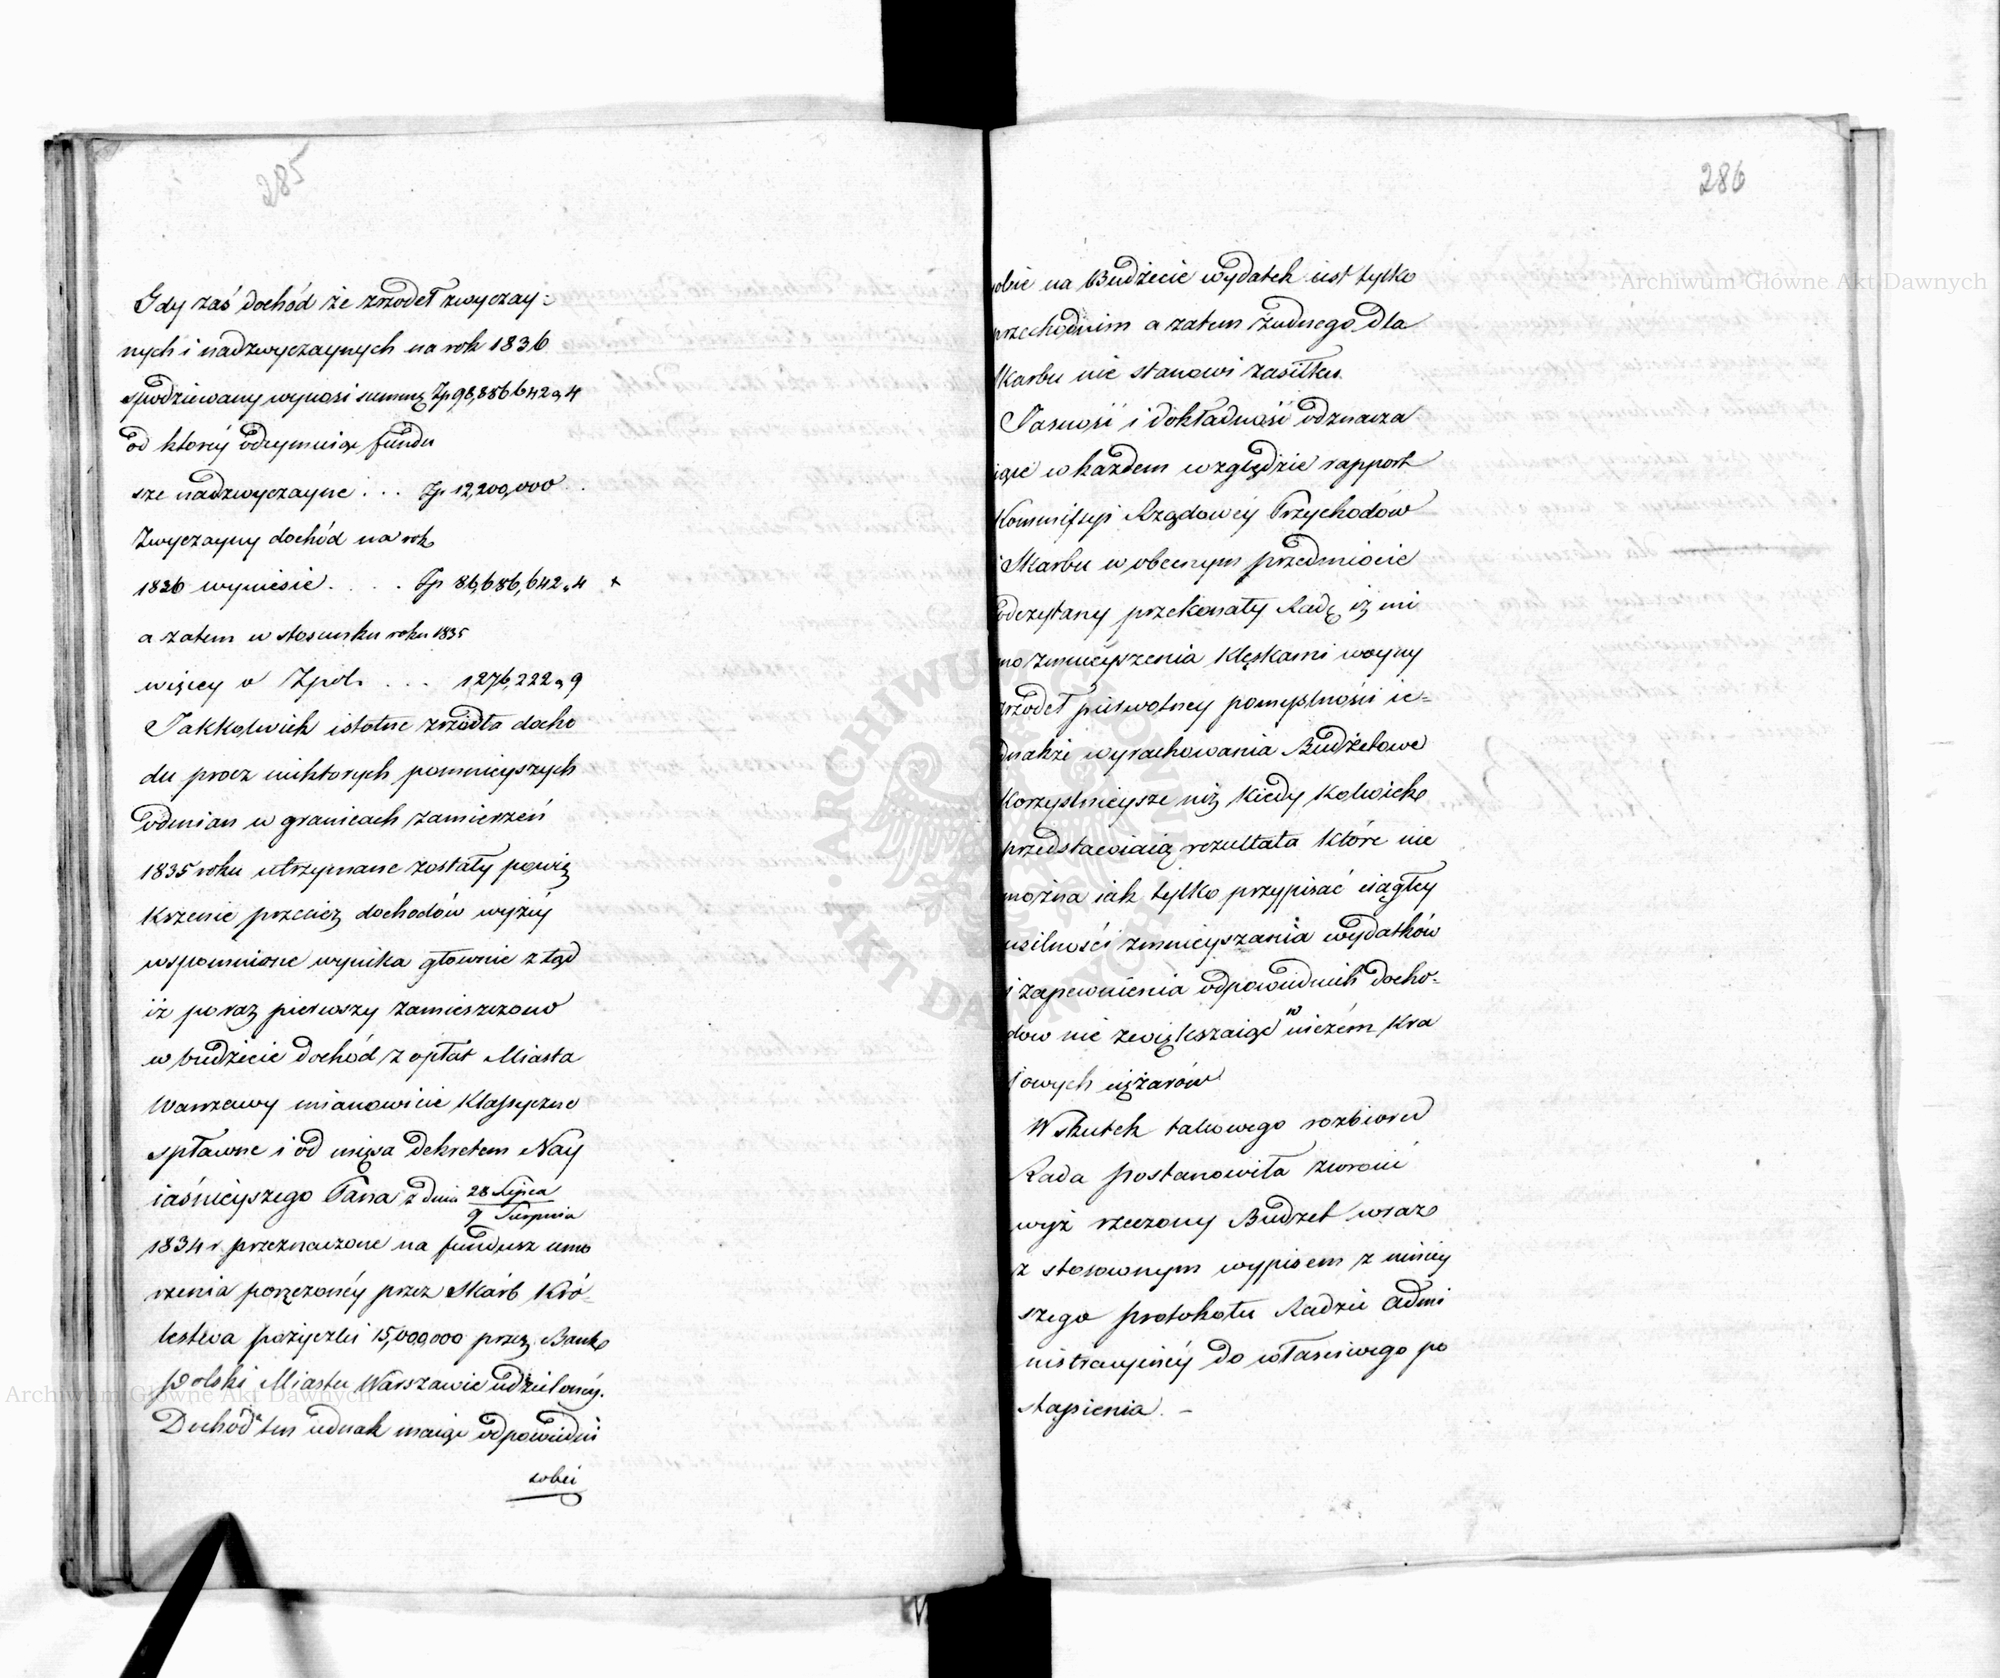 285
Gdy zaś dochód ze zrzódeł zwyczay-
nych i nadzwyczaynych na rok 1836
spodziewany wynosi summę Zp 98,886,642 g 4
od któréy odeymuiąc fundu
sze nadzwyczayne . . . Zp 12,200,000 . .
Zwyczayny dochód na rok
1836 wyniesie . . . . Zp 86,686,642 g 4
a zatem w stosunku roku 1835
więcey o Zpol. . . . 1276,222 g 9
Jakkolwiek istotne zrzódła docho
du procz niektorych pomnieyszych
odmian w granicach zamierzeń
1835 roku utrzymane zostały powię
kszenie przecież dochodów wyżéy
wspomnione wynika głownie z tąd
iż po raz pierwszy zamieszczono
w budżecie dochód z opłat Miasta
Warszawy mianowicie Klassyczne
spławne i od mięsa dekretem Nay
iaśnieyszego Pana z dnia 28 Lipca
9 Sierpnia
1834 r przeznaczone na fundusz umo
rzenia poręczonéy przez Skarb Kró-
lestwa pożyczki 15,000,000 przez Bank
polski Miastu Warszawie udzielonéy.
Dochód ten iednak maiąc odpowiedni
sobie
286
sobie na Budżecie wydatek iest tylko
przechodnim a zatem żadnego dla
Skarbu nie stanowi zasiłku.
Jasność i dokładność odznacza
iące w każdem względzie rapport
Kommissyi Rządowéy Przychodów
i Skarbu w obecnym przedmiocie
odczytany przekonały Radę iż mi
mo zmnieyszenia klęskami woyny
zrzódeł pierwotney pomyślności ie-
dnakże wyrachowania Budżetowe
korzystnieysze niż kiedy kolwiek
przedstawiaią rezultata które nie
można iak tylko przypisać ciągłey
usilności zmnieyszania wydatków
i zapewnienia odpowiednich docho-
dow nie zwiększaiąc w niczém kra
iowych ciężarów
W skutek takowego rozbioru
Rada postanowiła zwrócić
wyż rzeczony Budżet wraz
z stosownym wypisem z niniey
szego protokołu Radzie Admi
nistracyinéy do właściwego po
stąpienia. -
Archiwum Główne Akt Dawnych
Archiwum Główne Akt Dawnych
ARCHIWUM GŁÓWNE AKT DAWNYCH